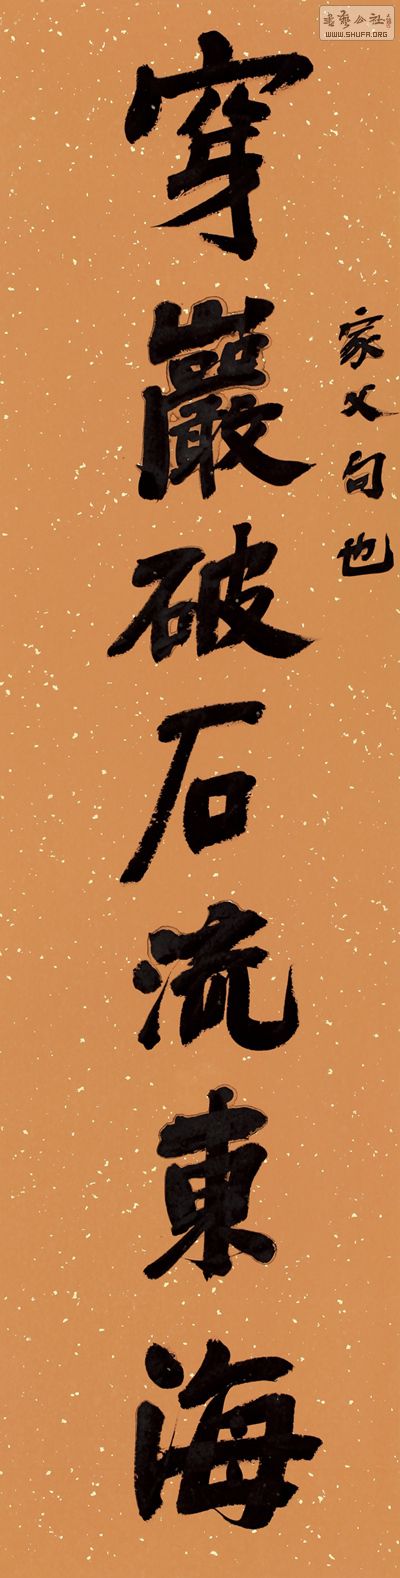 家父句也
穿巖破石流東海
書藝公社
WWW.SHUFA.ORG